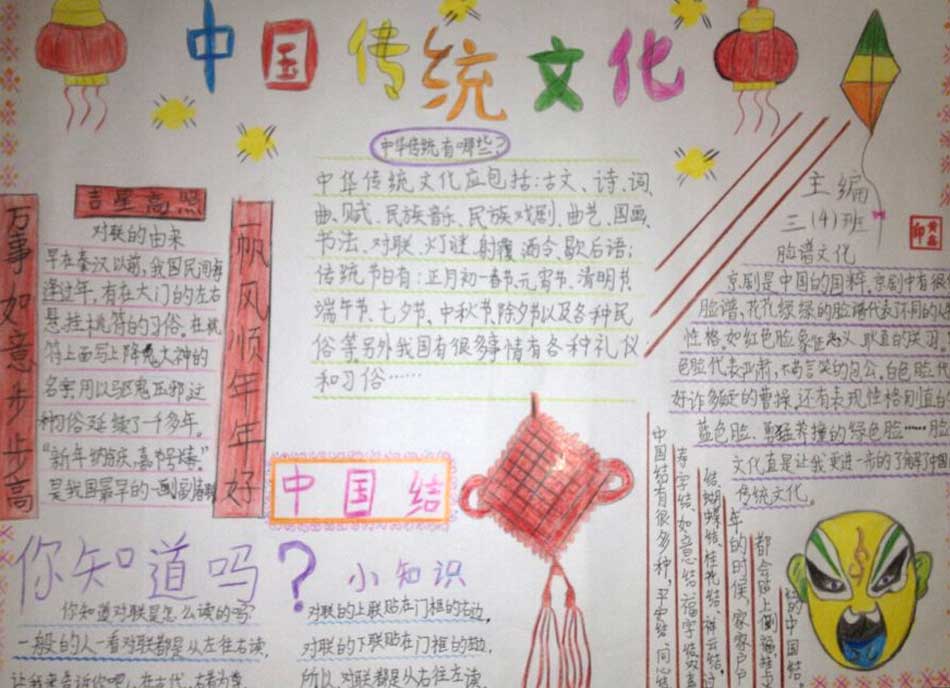 中国传统文化
万事如意步步高
吉星高照
一帆风顺年年好
对联的由来
早在秦汉以前,我国民间每
逢过年,有在大门的左右
悬挂桃符的习俗.在桃
符上面写上降鬼大神的
名字,用以驱鬼压邪,这
种习俗延续了一千多年。
“新年纳余庆,嘉节号长春”
是我国最早的一副春联
中华传统有哪些?
中华传统文化应包括:古文、诗、词、
曲、赋、民族音乐、民族戏剧、曲艺、国画、
书法、对联、灯谜、射覆、酒令、歇后语;
传统节日有:正月初一春节、元宵节、清明节、
端午节、七夕节、中秋节、除夕节以及各种民
俗等.另外我国有很多事情有各种礼仪
和习俗……
主编
三(4)班
脸谱文化
京剧是中国的国粹,京剧中有很
脸谱,花花绿绿的脸谱代表不同的
性格,如红色脸象征
色脸代表严肃,不苟言笑的包公,白色脸代
好诈多疑的曹操,还有表现性格刚直的
蓝色脸、勇猛莽撞的绿色脸……脸
文化真是让我更进一步的了解了中国
传统文化。
中国结
中国结有很多种,平安结、同心
寿字结、如意结、福字
结、蝴蝶结、桂花结、祥云结,过
年的时候,家家户户
都会贴上倒福,挂上
红的中国结
你知道吗?
你知道对联是怎么读的吗
一般的人一看对联都是从左往右读,
让我来告诉你吧!在古代,右者为尊
小知识
对联的上联贴在门框的右边,
对联的下联贴在门框的左边,
所以对联都是从右往左读